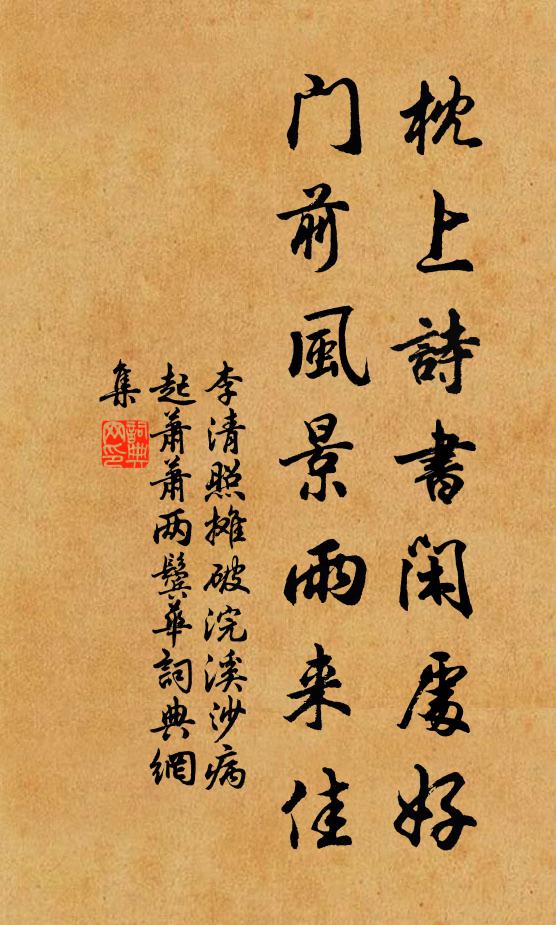 枕上詩書閑處好
门前風景雨来佳
李清照摊破浣溪沙病
起萧萧两鬓華詞典網
集
詞典网印